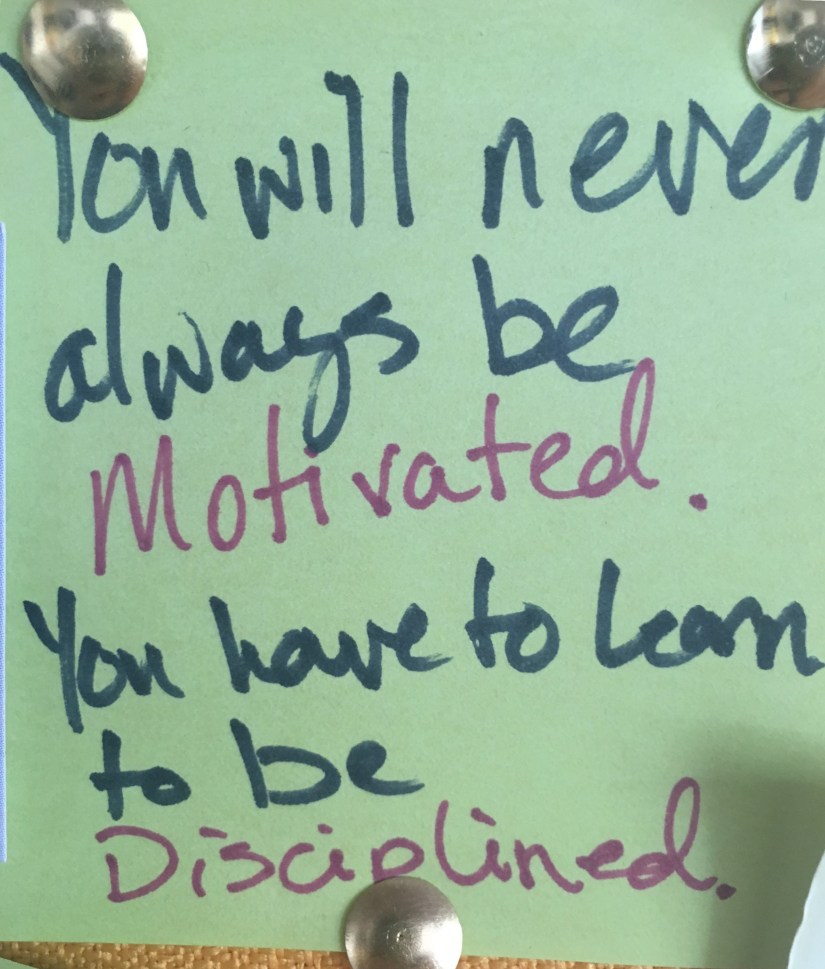 You will never
always be
Motivated.
You have to learn
to be
Disciplined.